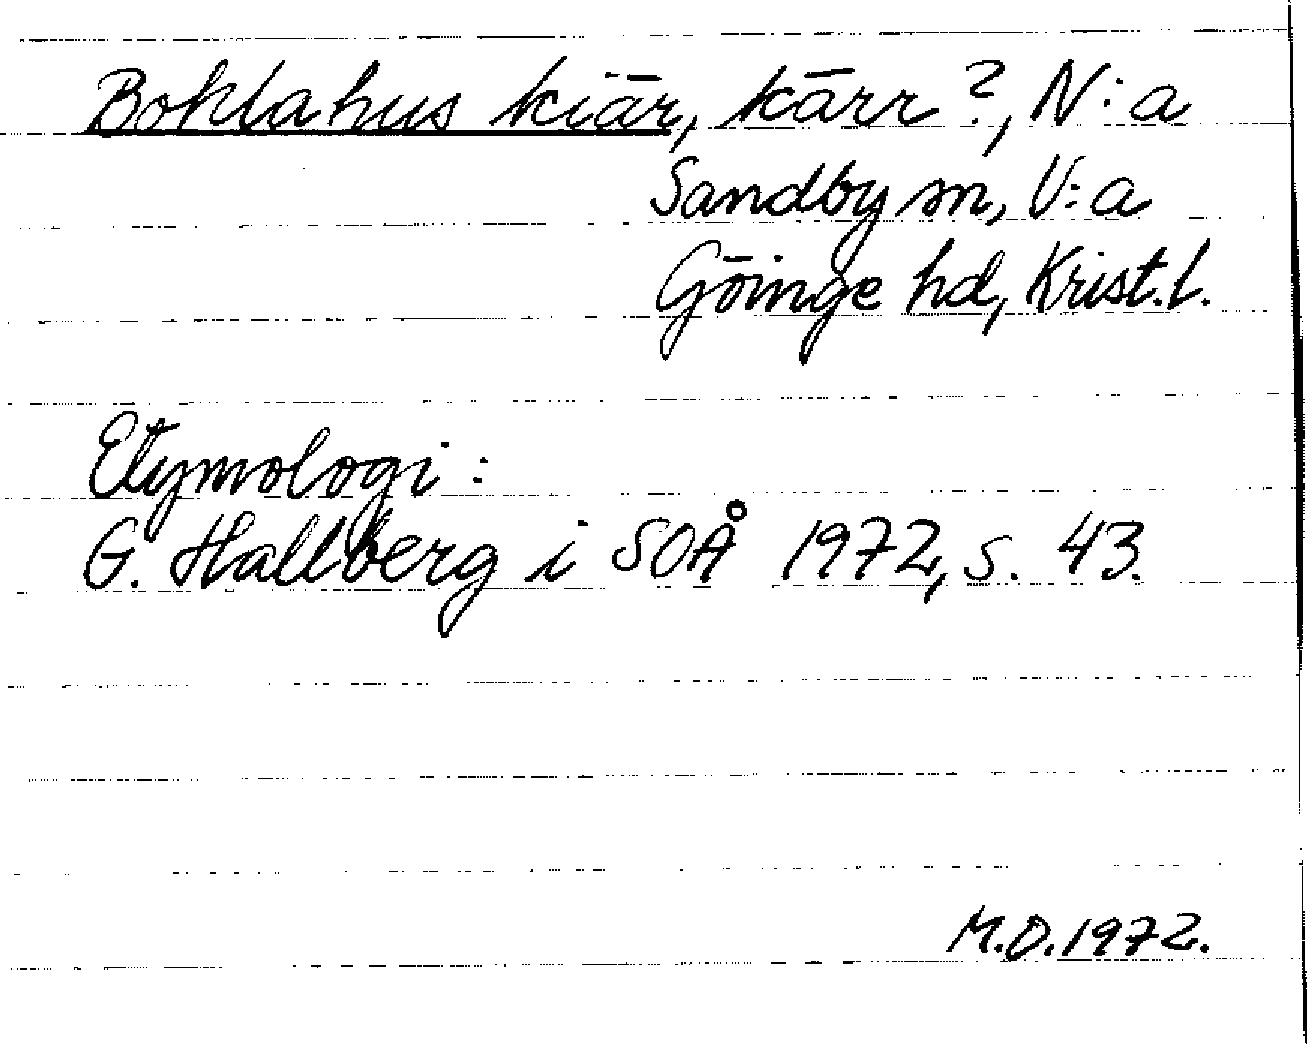 Boklahus kiär, kärr?, N:a
Sandby sn, V:a
Göinge hd, Krist.l.
Etymologi:
G. Hallberg i SOÅ 1972, s. 43.
M.D. 1972.